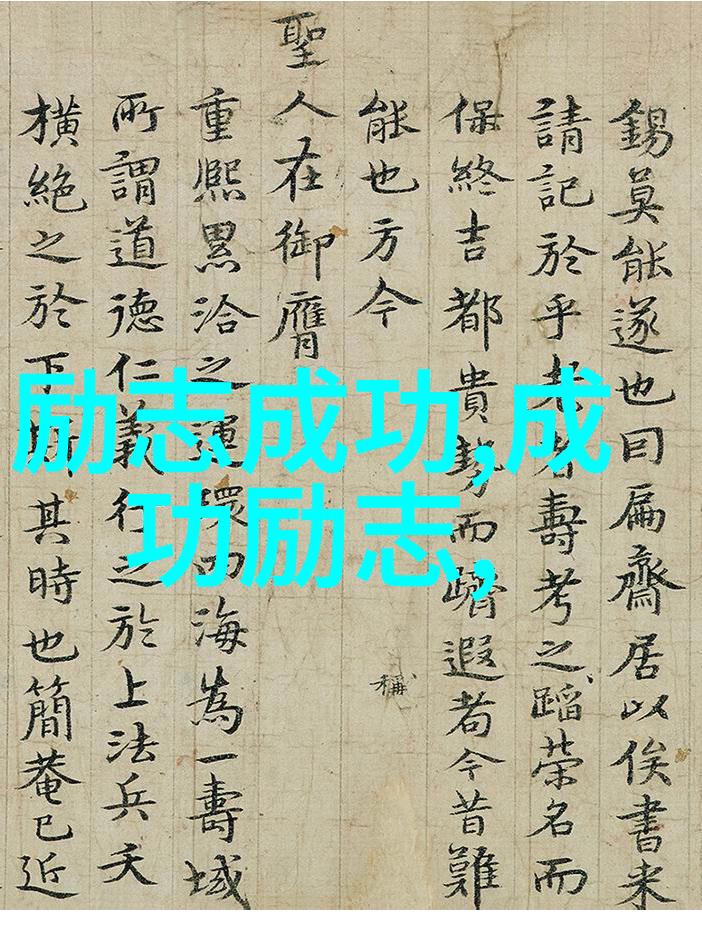 錫莫能遂也曰扁齋居以俟書来
請記於乎老者壽考之蹈榮名而
保終吉都貴勢而躋遐者今昔難
稱
能也方今
聖人在御膺
重熙累洽之運環四海為一壽域
所謂道德仁義行之於上法兵夭
橫絶之於下 其時也簡菴已近
励志成功,成
功励志,